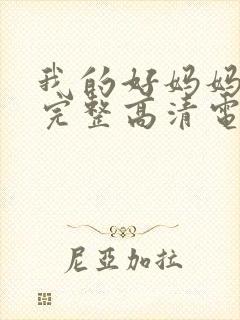 我的好妈妈
完整高清電
尼亞加拉